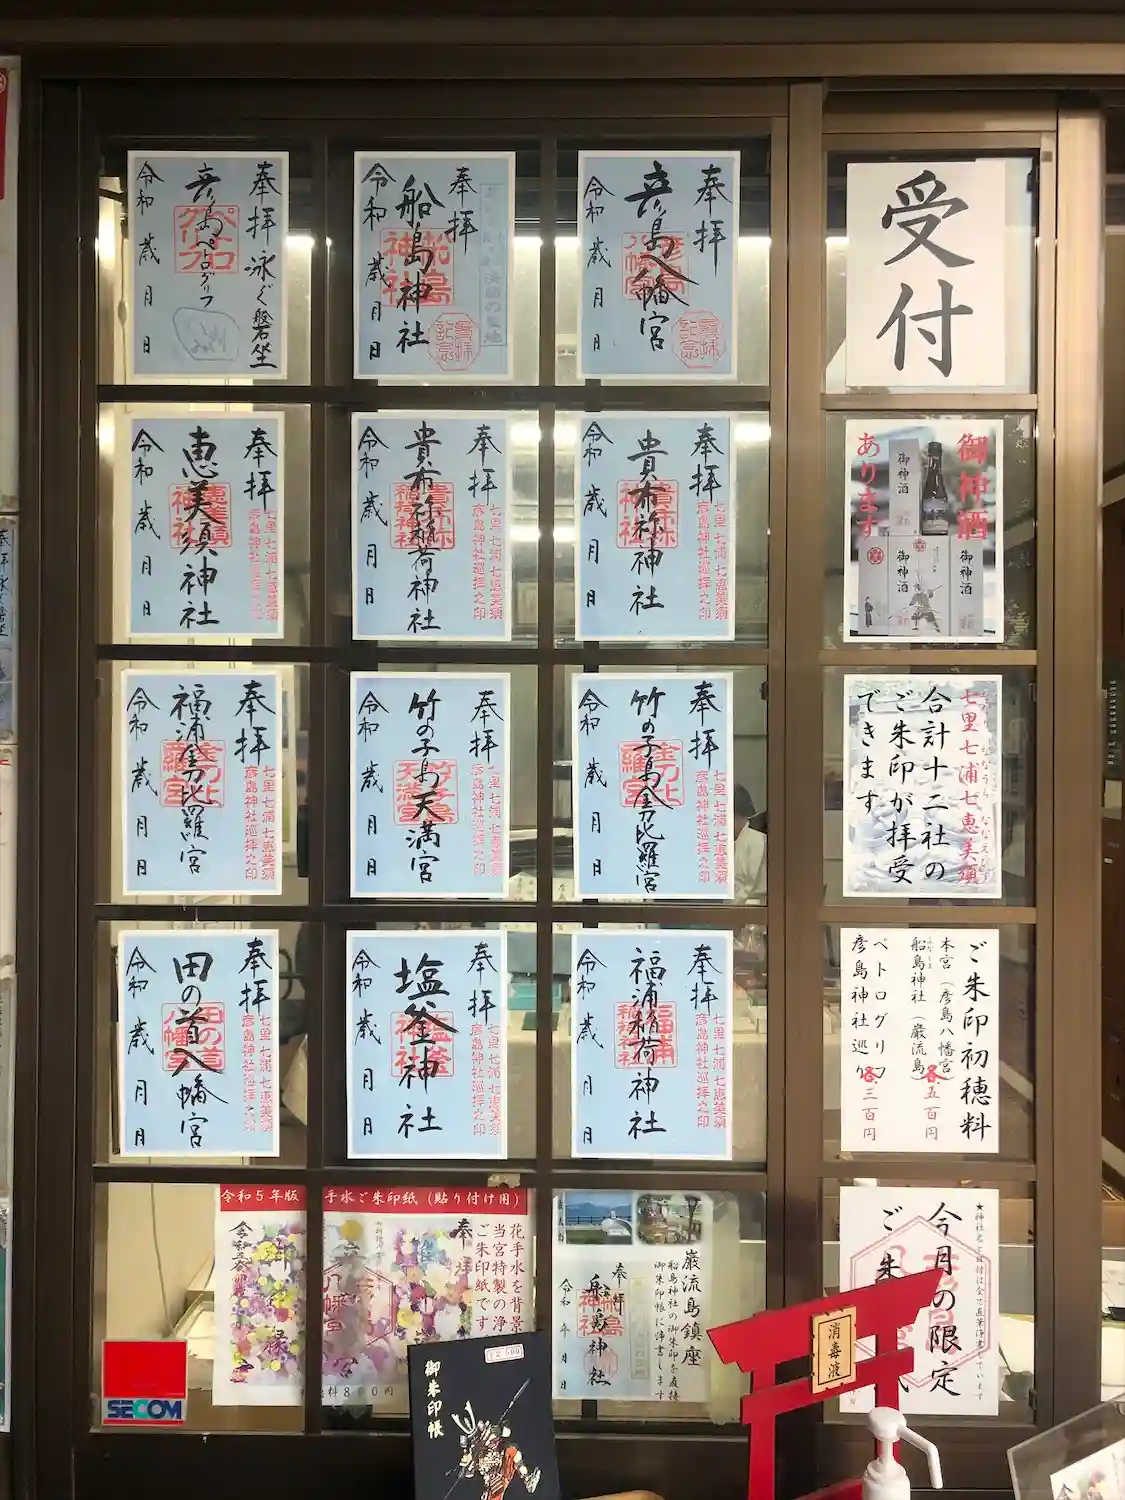 奉拝 泳ぐ磐坐
彦島ペトログリフ
ペトログリフ
令和 歳 月 日
奉拝
船島神社
船島神社
決闘の聖地
令和 歳 月 日
奉拝
彦島八幡宮
彦島八幡宮
令和 歳 月 日
受付
奉拝
七里七浦七恵美須
彦島神社巡拝之印
恵美須神社
恵美須神社
令和 歳 月 日
奉拝
七里七浦七恵美須
彦島神社巡拝之印
貴布祢稲荷神社
貴布祢稲荷神社
令和 歳 月 日
奉拝
七里七浦七恵美須
彦島神社巡拝之印
貴布祢神社
貴布祢神社
令和 歳 月 日
御神酒
あります
御神酒
御神酒
御神酒
奉拝
七里七浦七恵美須
彦島神社巡拝之印
福浦金刀比羅宮
金刀比羅宮
令和 歳 月 日
奉拝
七里七浦七恵美須
彦島神社巡拝之印
竹の子島天満宮
竹ノ子島天満宮
令和 歳 月 日
奉拝
七里七浦七恵美須
彦島神社巡拝之印
竹の子島金刀比羅宮
金刀比羅宮
令和 歳 月 日
七里七浦七恵美須
合計十二社の
ご朱印が拝受
できます
奉拝
七里七浦七恵美須
彦島神社巡拝之印
田の首八幡宮
田の首八幡宮
令和 歳 月 日
奉拝
七里七浦七恵美須
彦島神社巡拝之印
塩釜神社
塩釜神社
令和 歳 月 日
奉拝
七里七浦七恵美須
彦島神社巡拝之印
福浦稲荷神社
福浦稲荷神社
令和 歳 月 日
ご朱印初穂料
本宮（彦島八幡宮
船島神社（巌流島
各五百円
ペトログリフ
彦島神社巡り
各三百円
令和5年版
手水ご朱印紙（貼り付け用）
花手水を背景
当宮特製の浄
ご朱印紙です
奉拝
料800円
巌流島鎮座
船島神社の御朱印を直接
御朱印帳に浄書します
奉拝
船島神社
船島神社
令和 年 月 日
今月の限定
ご朱
SECOM
御朱印帳
消毒液